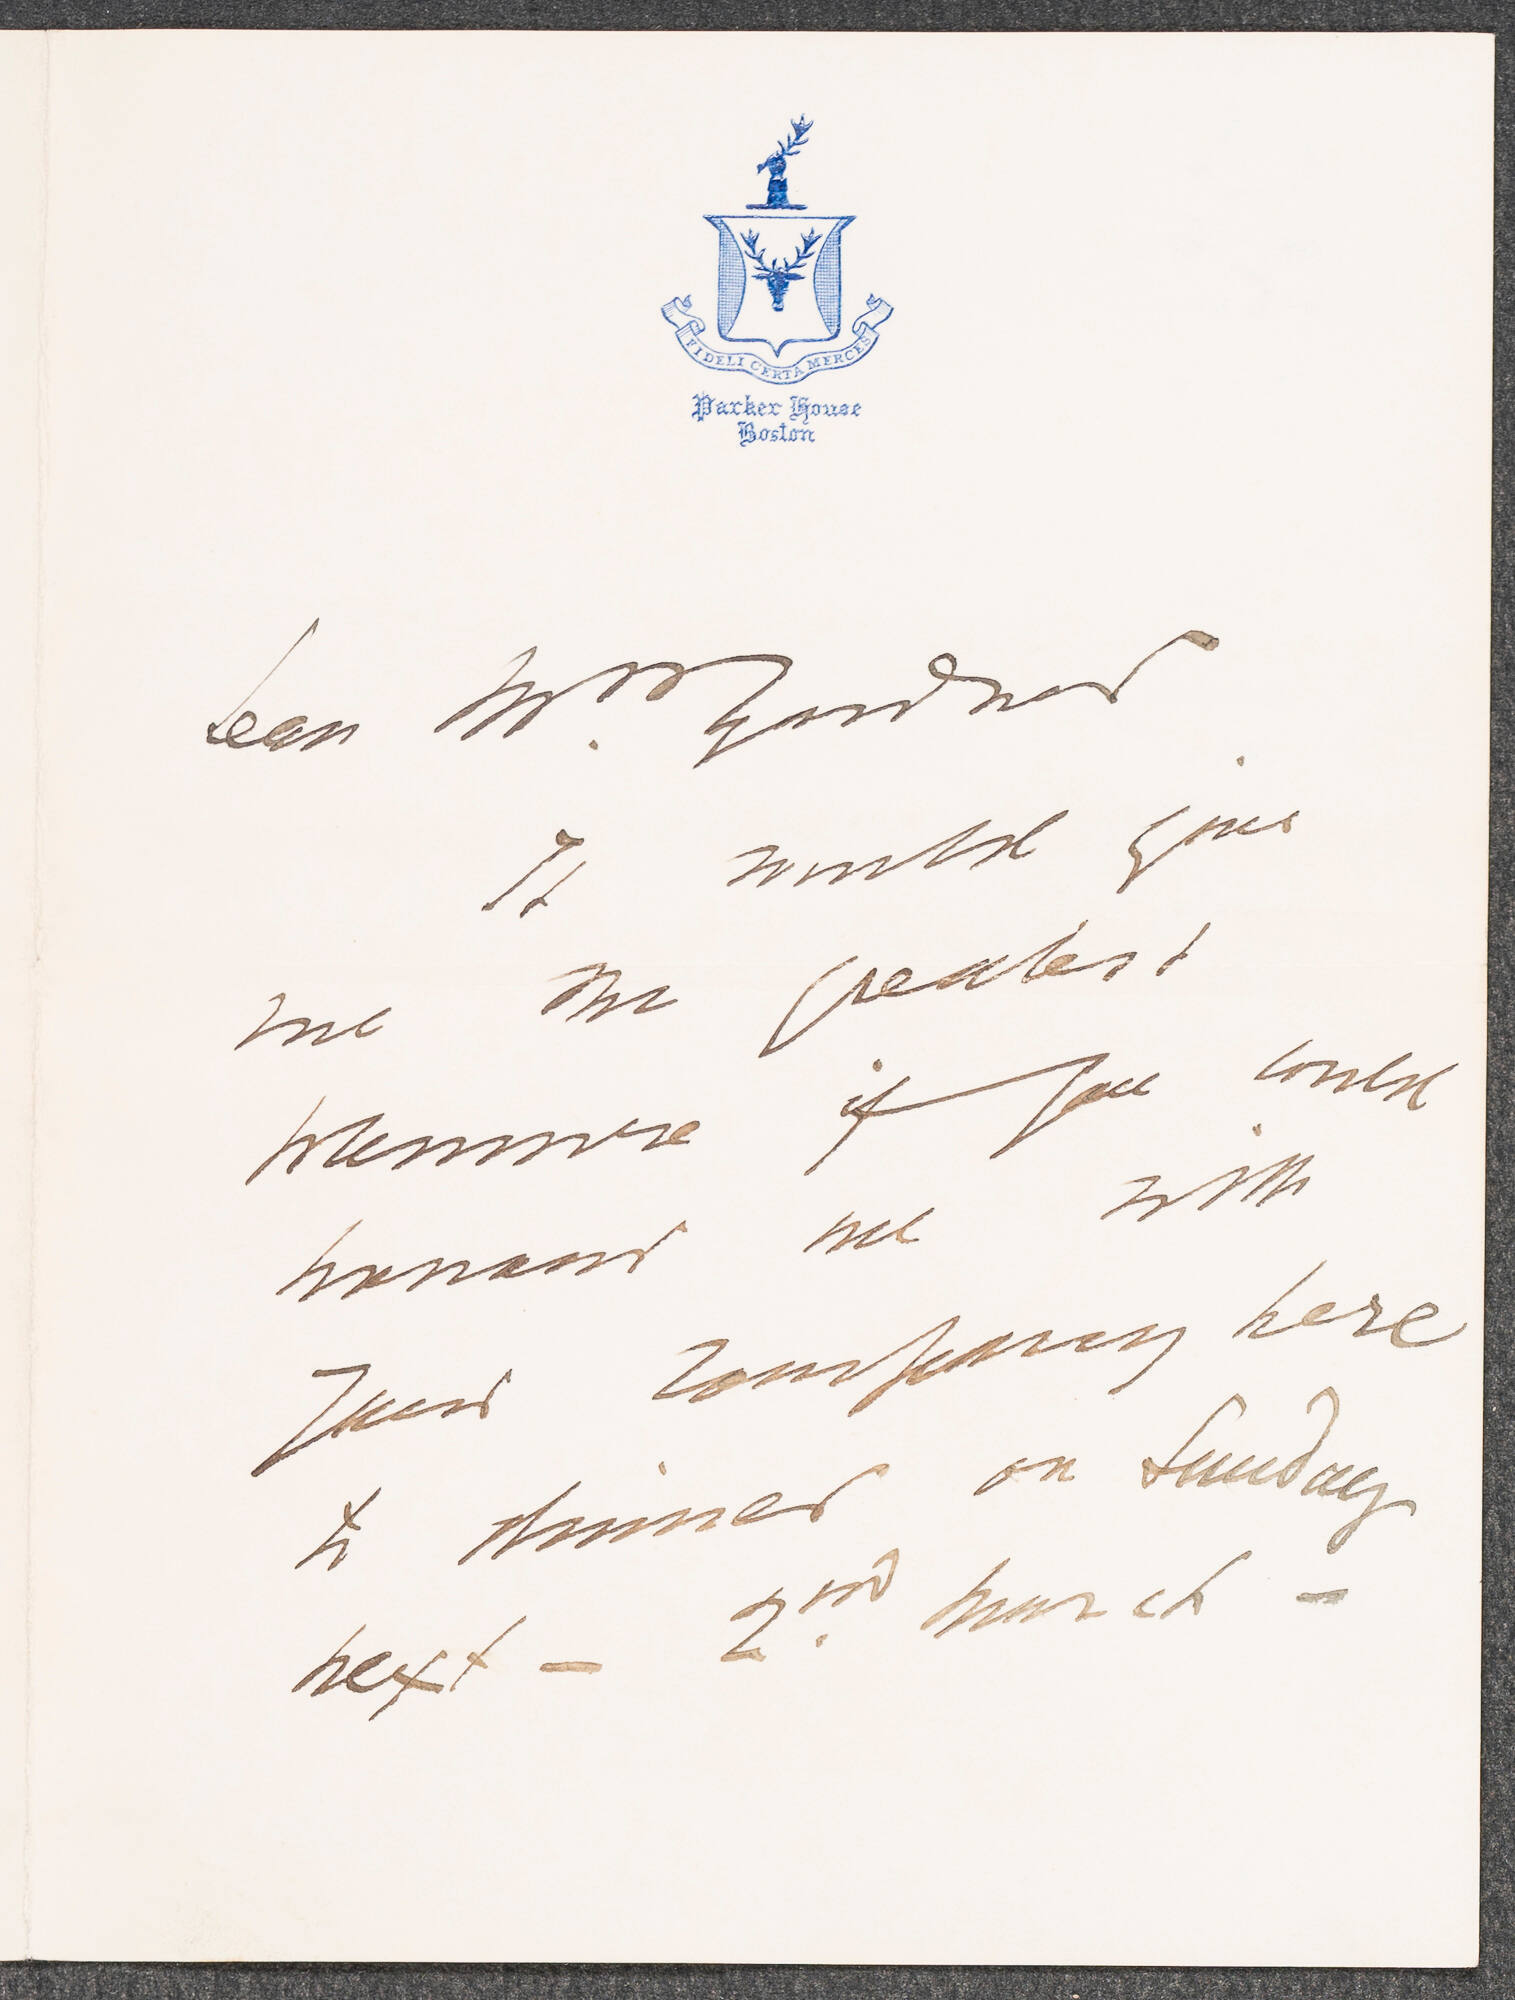 FIDELI CERTA MERCES
Parker House
Boston
Dear Mrs. Gardner
It would give
me the greatest
pleasure if you could
honour me with
your company here
to dinner on Sunday
next – 2nd. March –